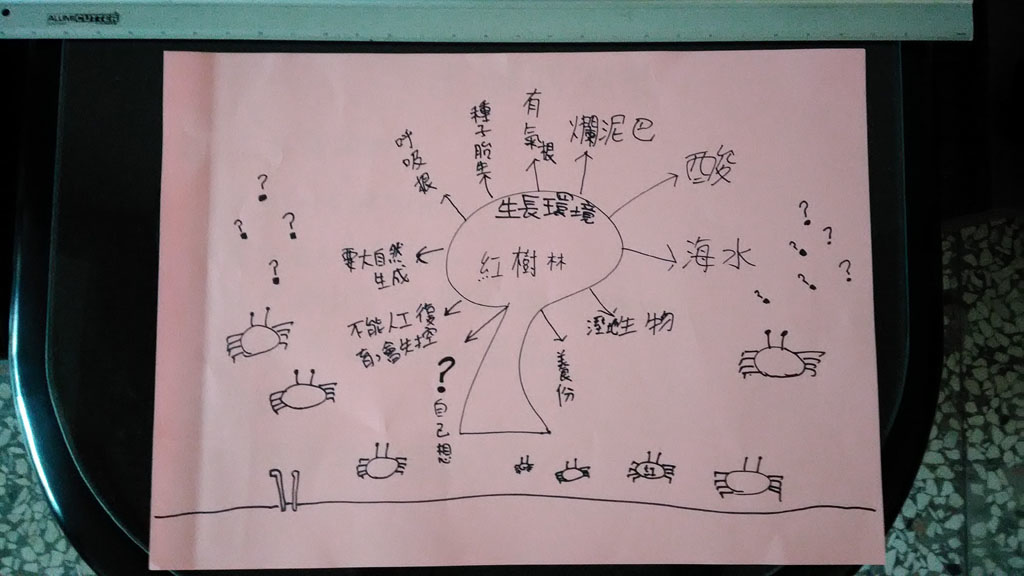 ALUMICUTTER
呼吸根
種子胎生
有氣根
爛泥巴
酸
生長環境
紅樹林
海水
要大自然
生成
不能人工復
育,會失控
溼地生物
養份
? 自己想
? ? ? ?
? ? ? ? ? ?